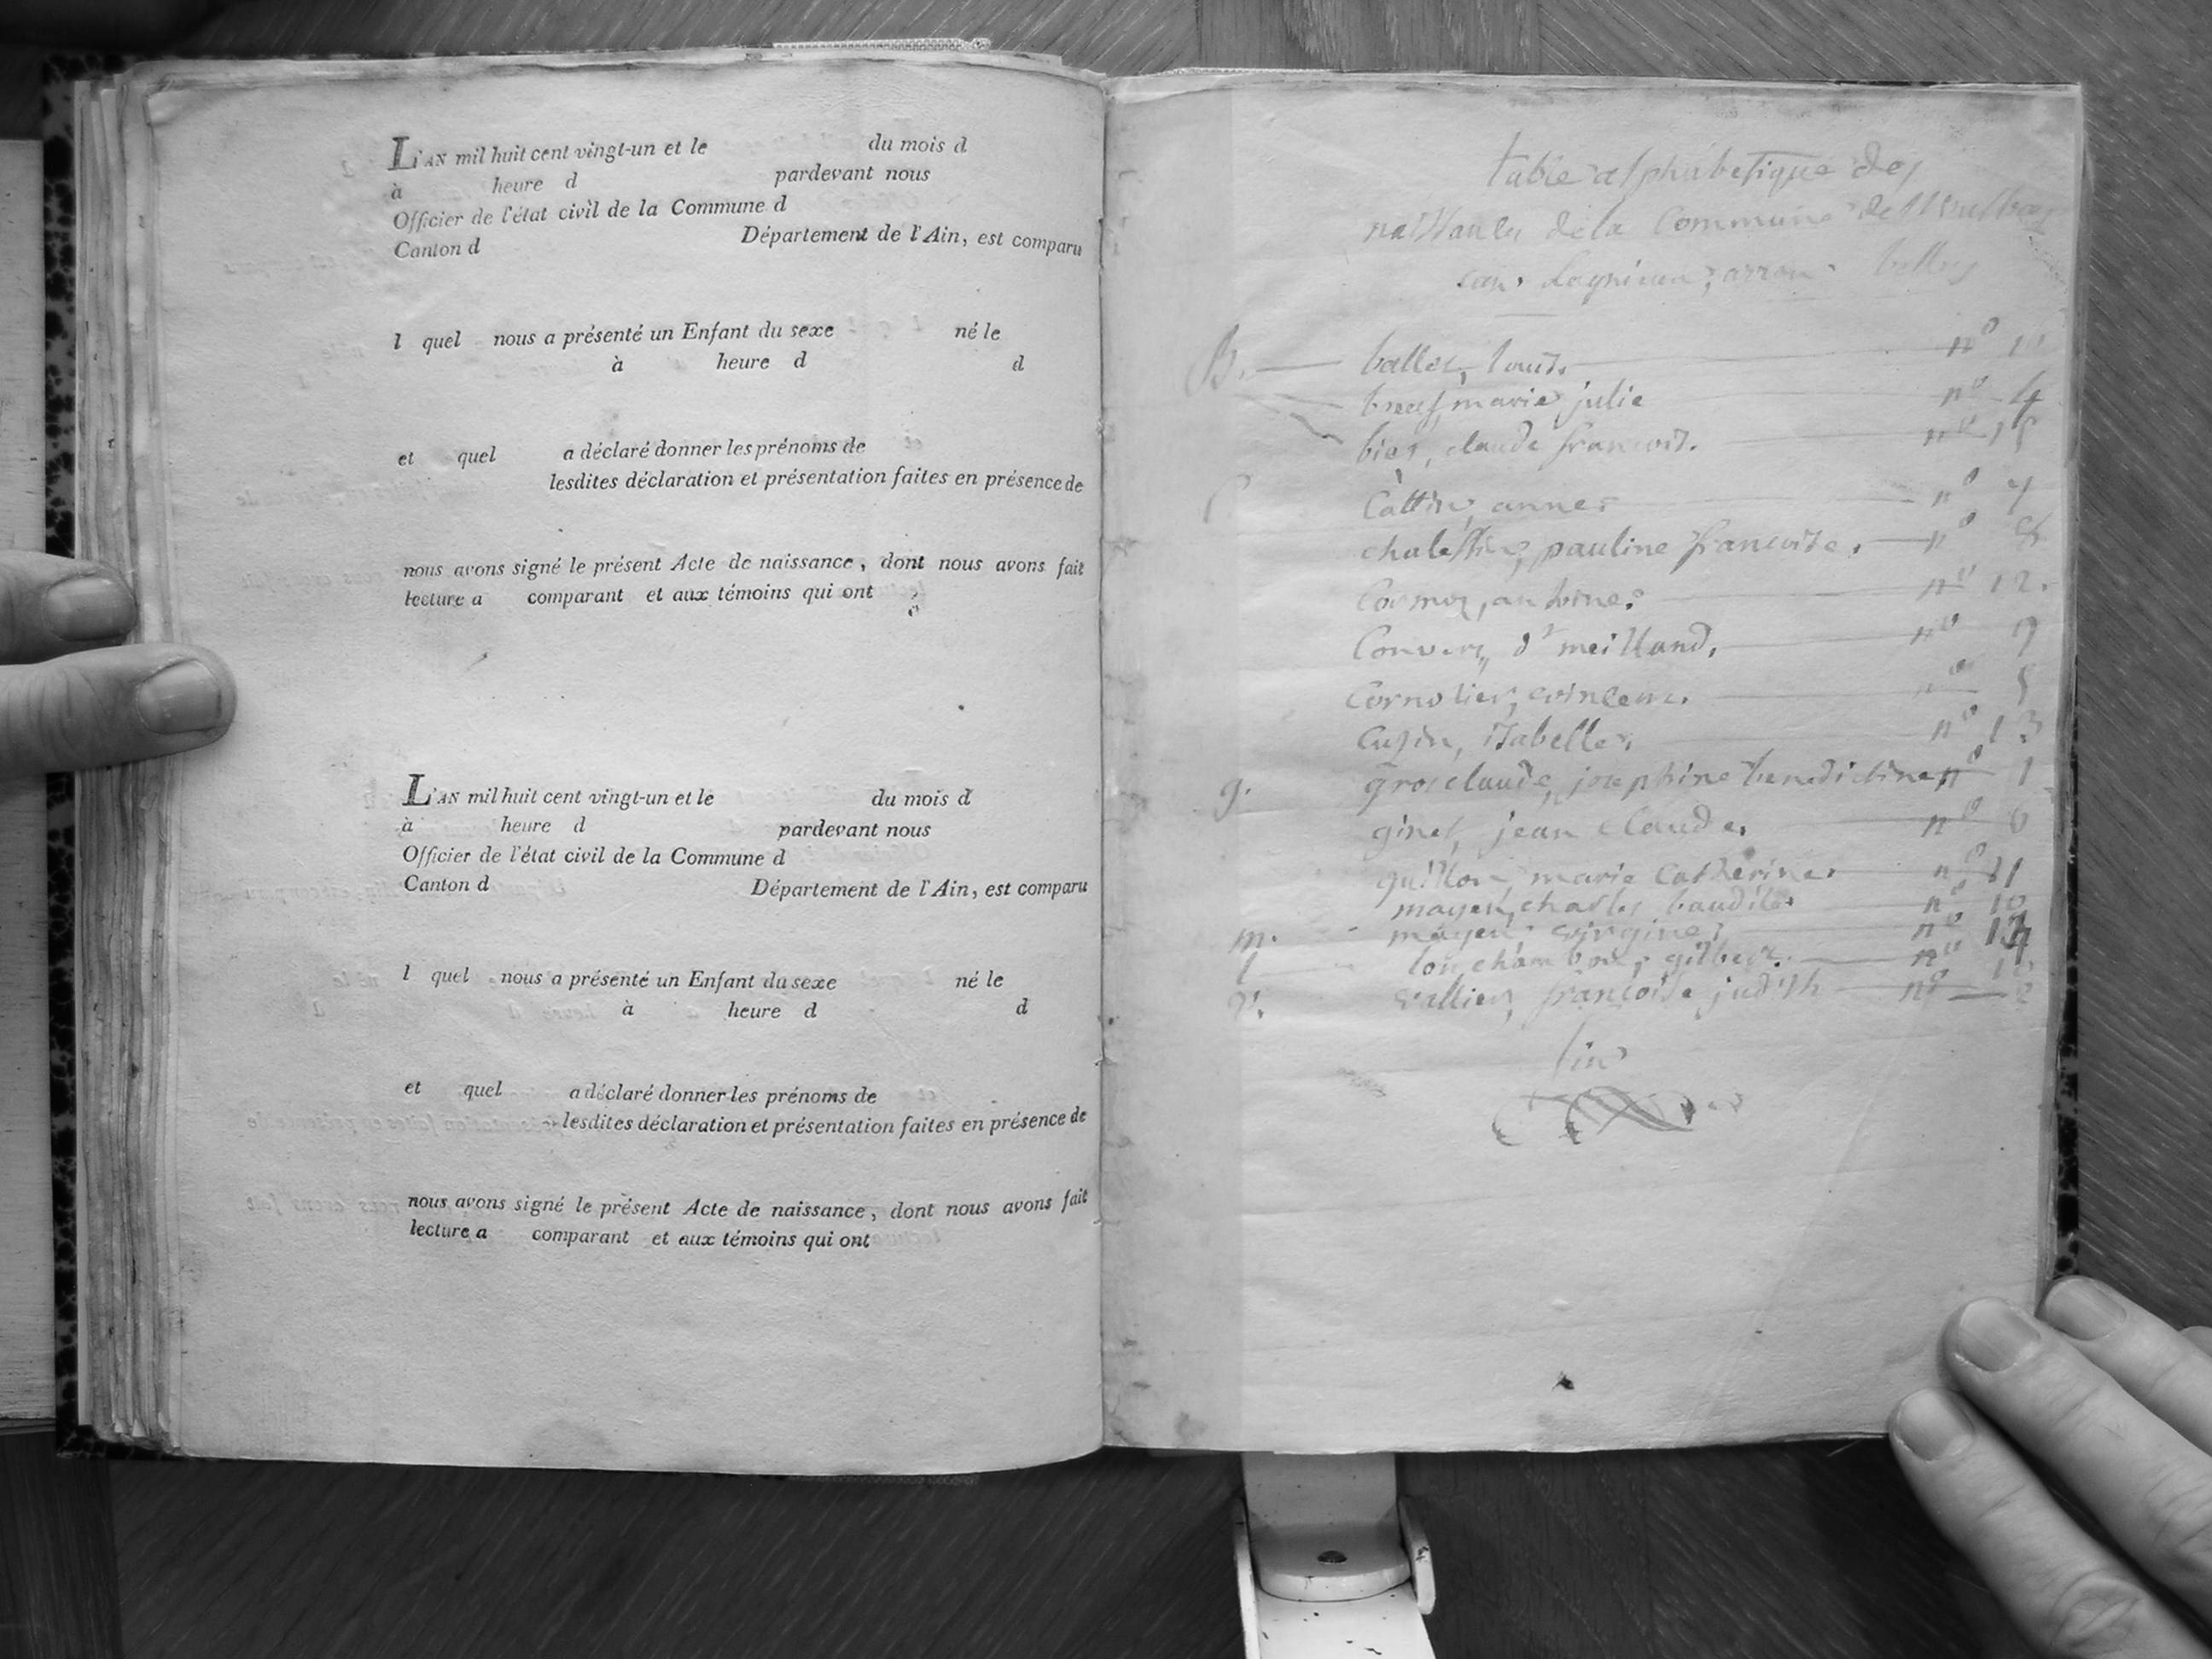 L'AN mil huit cent vingt-un et le du mois d
à heure d pardevant nous
Officier de l'état civil de la Commune d
Canton d Département de l'Ain, est comparu
l quel nous a présenté un Enfant du sexe né le
à heure d d
et quel a déclaré donner les prénoms de
lesdites déclaration et présentation faites en présence de
nous avons signé le présent Acte de naissance, dont nous avons fait
lecture a comparant et aux témoins qui ont
L'AN mil huit cent vingt-un et le du mois d
à heure d pardevant nous
Officier de l'état civil de la Commune d
Canton d Département de l'Ain, est comparu
l quel nous a présenté un Enfant du sexe né le
à heure d d
et quel a déclaré donner les prénoms de
lesdites déclaration et présentation faites en présence de
nous avons signé le présent Acte de naissance, dont nous avons fait
lecture a comparant et aux témoins qui ont
table alphabetique des
de la Commune de
can. Lagnieu, arron. belley
B. ballet, louis. n°
marie julie n° 4
claude francois. n°
C Cattin, anne. n° 7
pauline francoise. n° 8
antoine. n° 12.
Convers, meilland. n° 9
n° 5
Cuzin, isabelle. n° 13
g. grosclaude, josephine benedictine n° 1
ginet, jean claude. n° 6
guillon, marie Catherine. n° 11
charles baudile. n° 10
m. n°
l gilbert. n°
v. vallier, françoise judith n° 2
fin